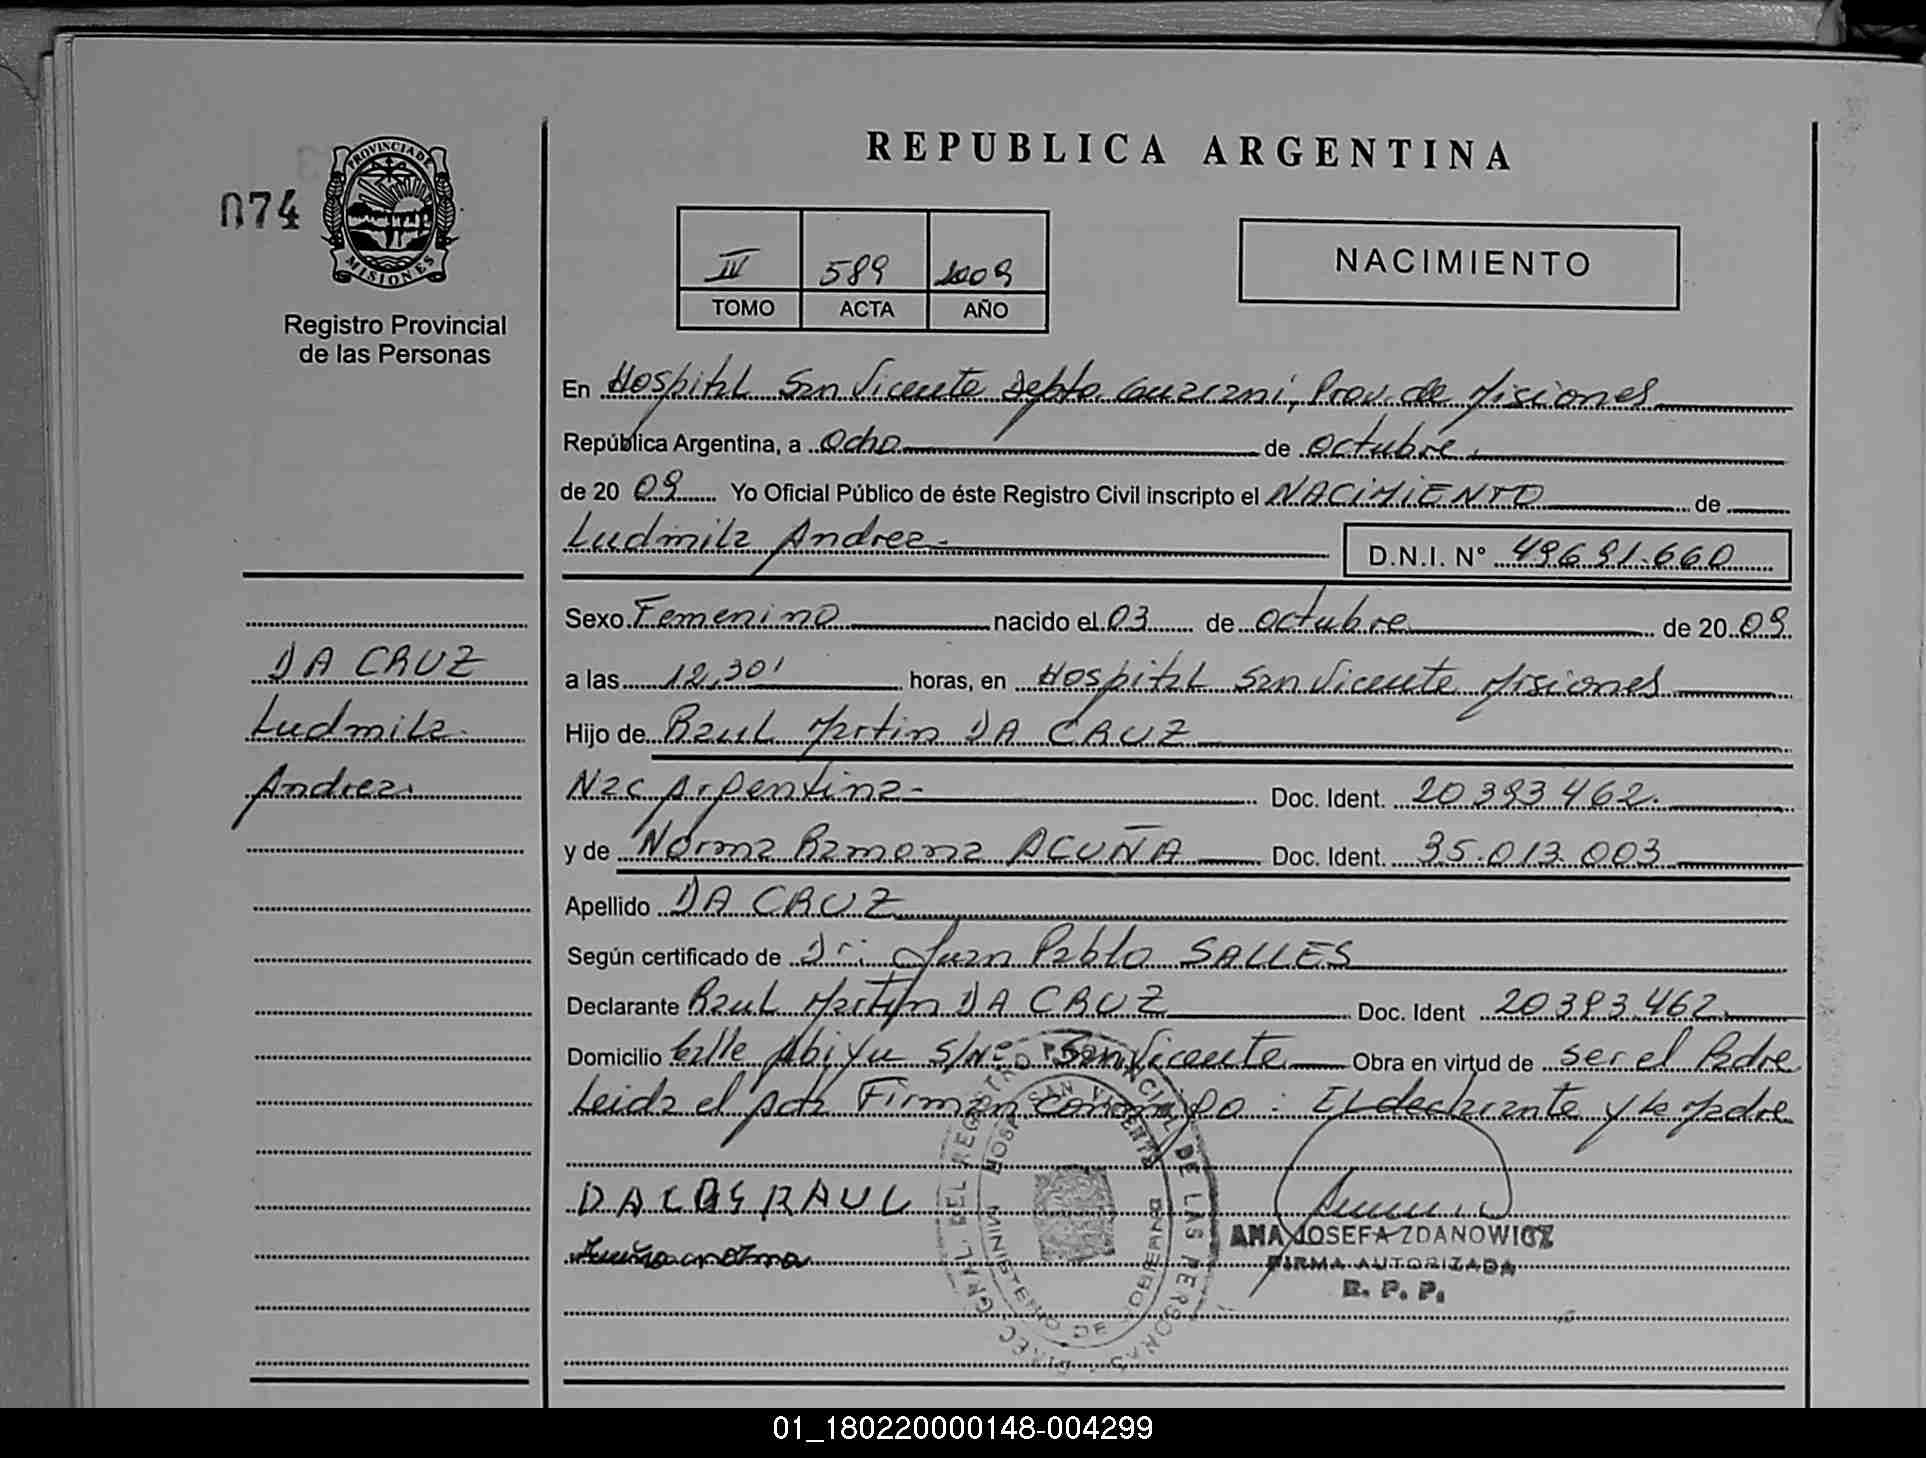 REPUBLICA ARGENTINA
074
PROVINCIA DE MISIONES
Registro Provincial
de las Personas
IV 589 2009
TOMO ACTA AÑO
NACIMIENTO
En Hospital San Vicente Depto. Guarani, Prov. de Misiones
República Argentina, a ocho de octubre
de 20 09 Yo Oficial Público de éste Registro Civil inscripto el NACIMIENTO de
Ludmila Andrea D.N.I. N° 49691.660
Sexo Femenino nacido el 03 de octubre de 20 09
a las 12,30' horas, en Hospital San Vicente Misiones
Hijo de Raul Martin DA CRUZ
Nac Argentina- Doc. Ident. 20 393 462.
y de Norma Ramona ACUÑA Doc. Ident. 35.013.003
Apellido DA CRUZ
Según certificado de Dr: Juan Pablo SALLES
Declarante Raul Martin DA CRUZ Doc. Ident 20 393.462
Domicilio Calle Abiyu S/Nº San Vicente Obra en virtud de ser el Padre
Leida el acta Firman conmigo: El declarante y la Madre
DA CRUZ
Ludmila
Andrea
RAUL
ANA JOSEFA ZDANOWICZ
FIRMA AUTORIZADA
R. P. P.
DIREC. GRAL. DEL REGISTRO PROVINCIAL DE LAS PERSONAS
HOSPITAL SAN VICENTE
MINISTERIO DE GOBIERNO
01_180220000148-004299